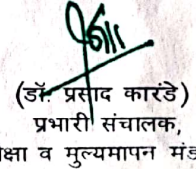 (डॉ. प्रसाद कारंडे)
प्रभारी संचालक,
क्षा व मुल्यमापन मंड